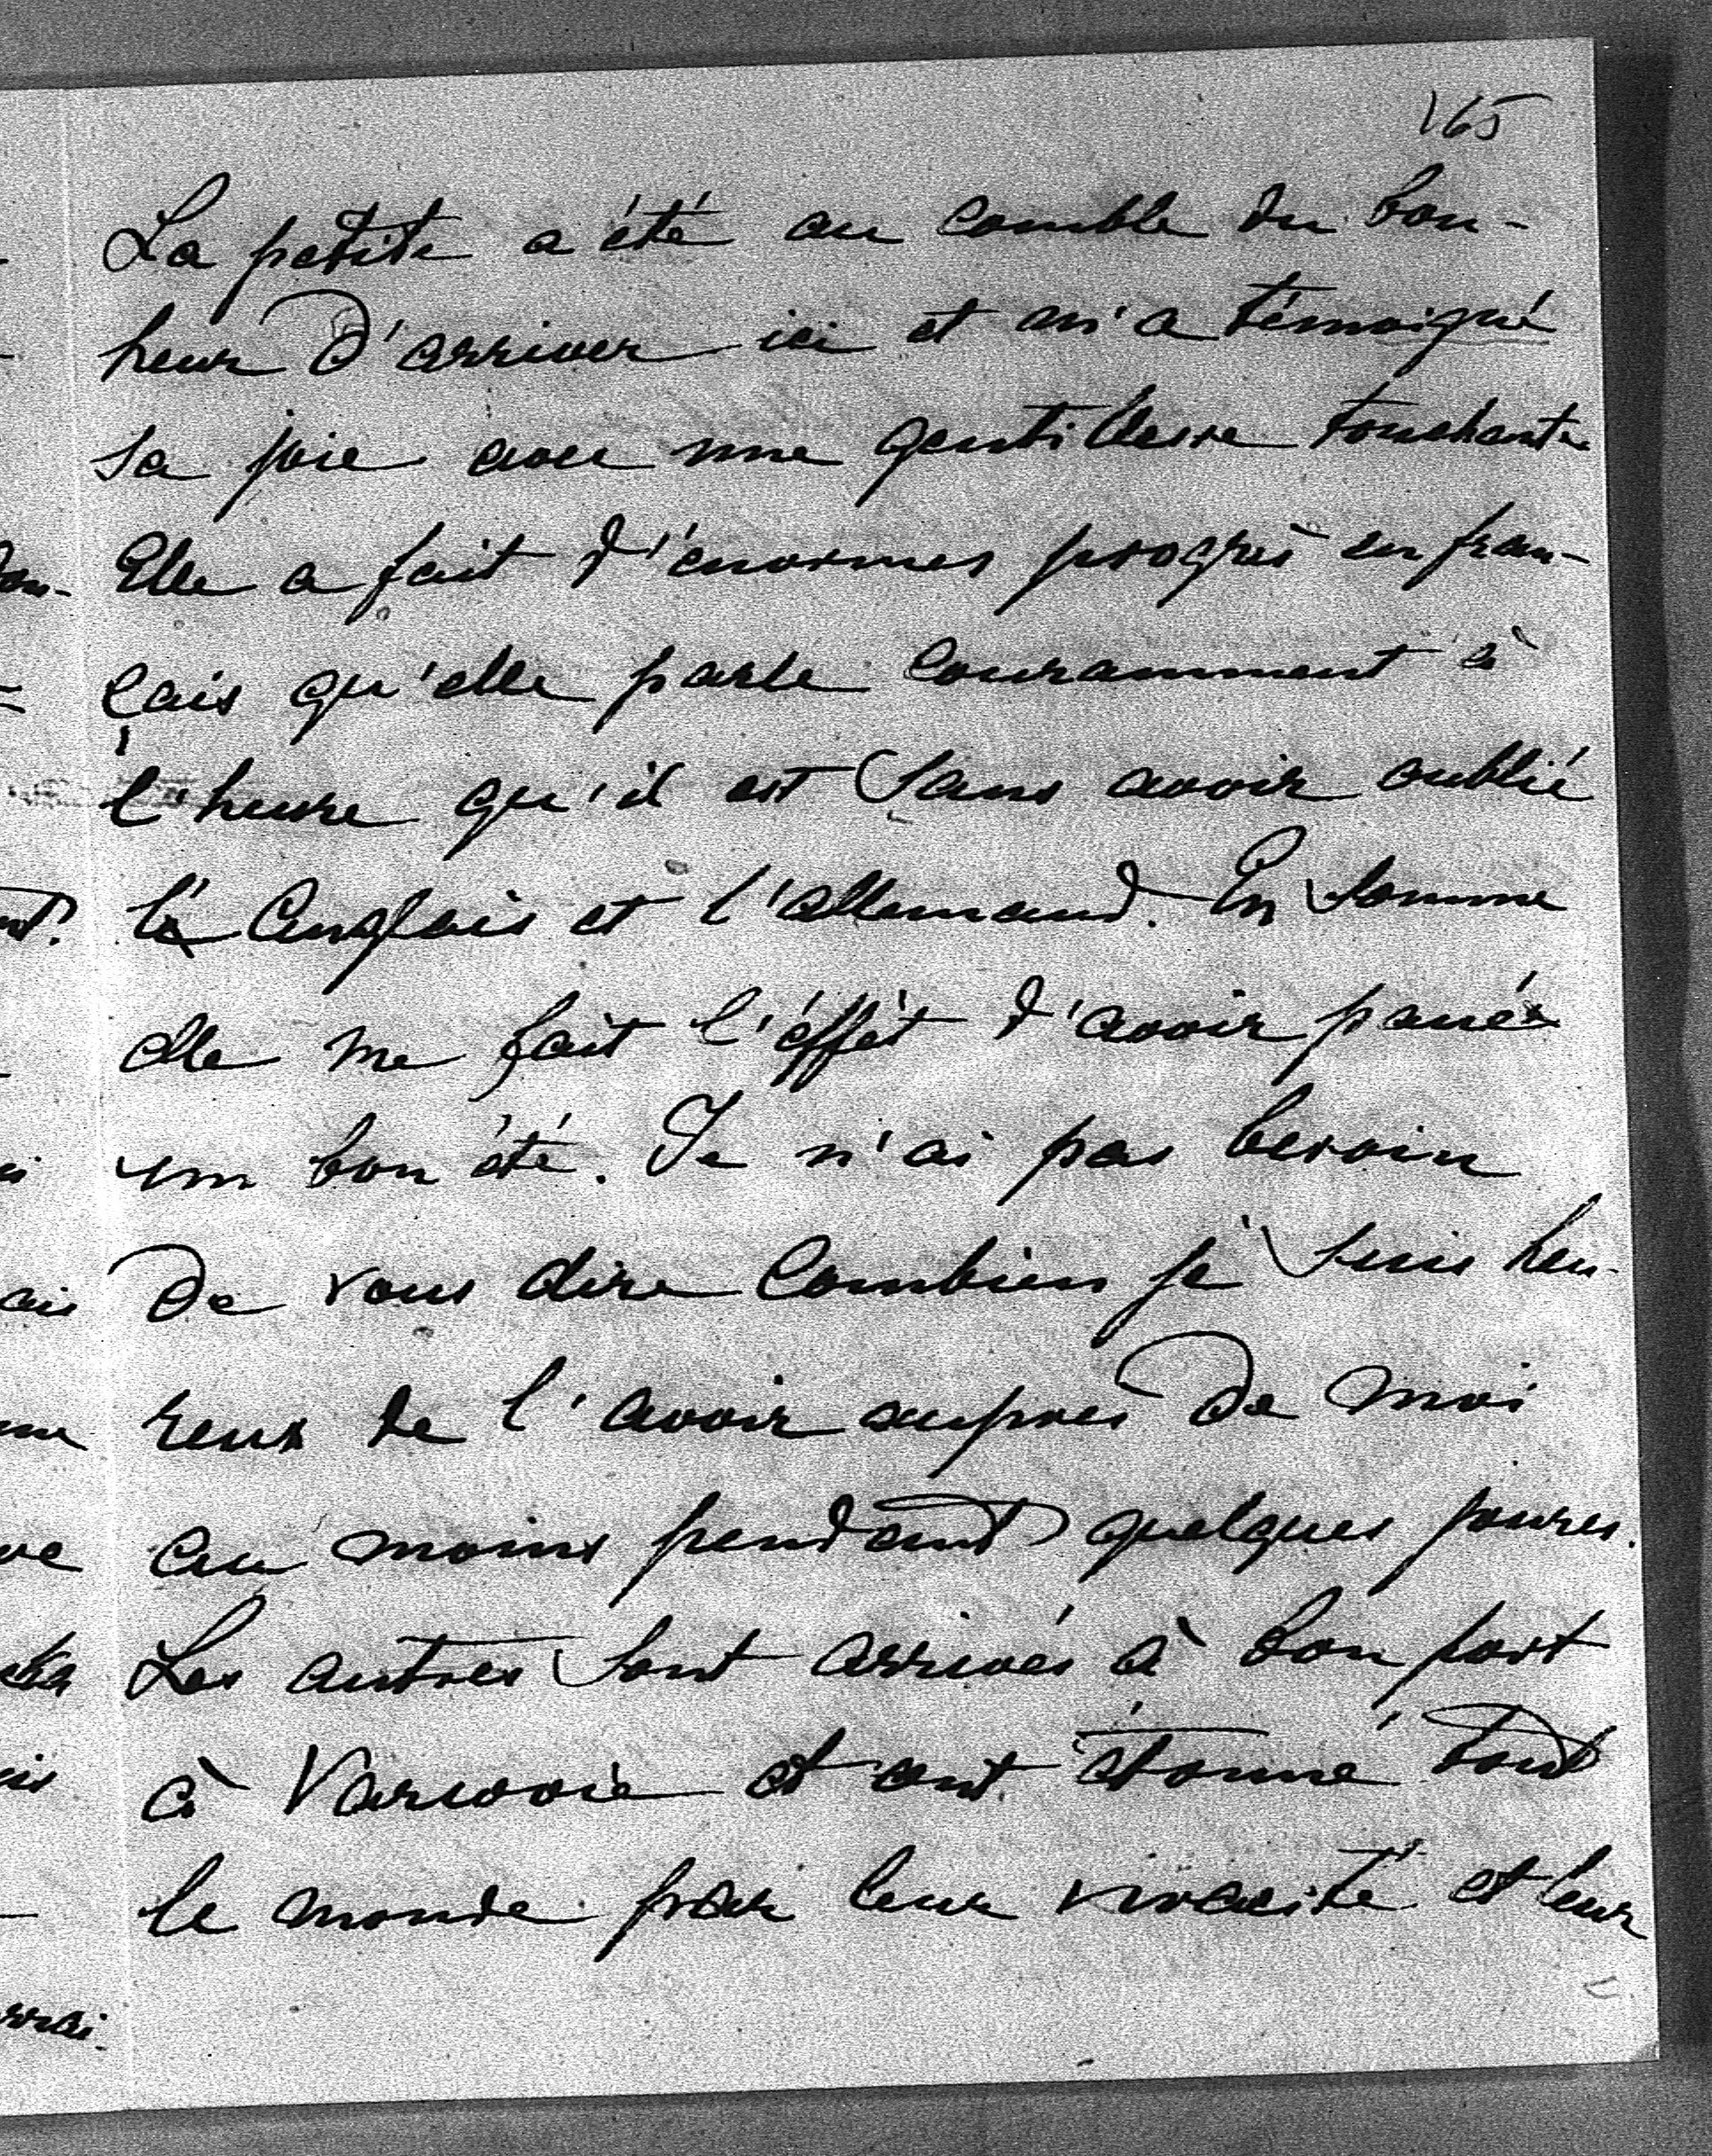 165
La petite a été au comble du bon-
heur d'arriver ici et m'a témoigné
sa joie avec une gentillesse touchante
Elle a fait d'énormes progrès en fran-
çais qu'elle parle couramment à
l'heure qu'il est sans avoir oublié
l'Anglais et l'allemand. En somme
elle me fait l'éffèt d'avoir passé
un bon été. Je n'ai pas besoin
de vous dire combien je suis heu-
reux de l'avoir auprès de moi
au moins pendant quelques jours.
Les autres sont arrivés à bon port
à Varsovie et ont étonné tout
le monde par leur vivacité et leur